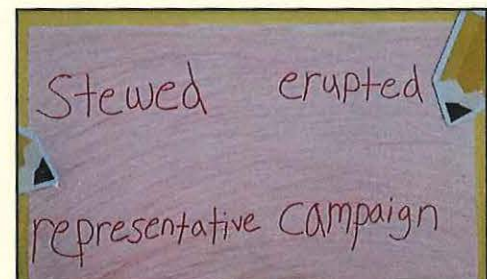 Stewed erupted
representative campaign